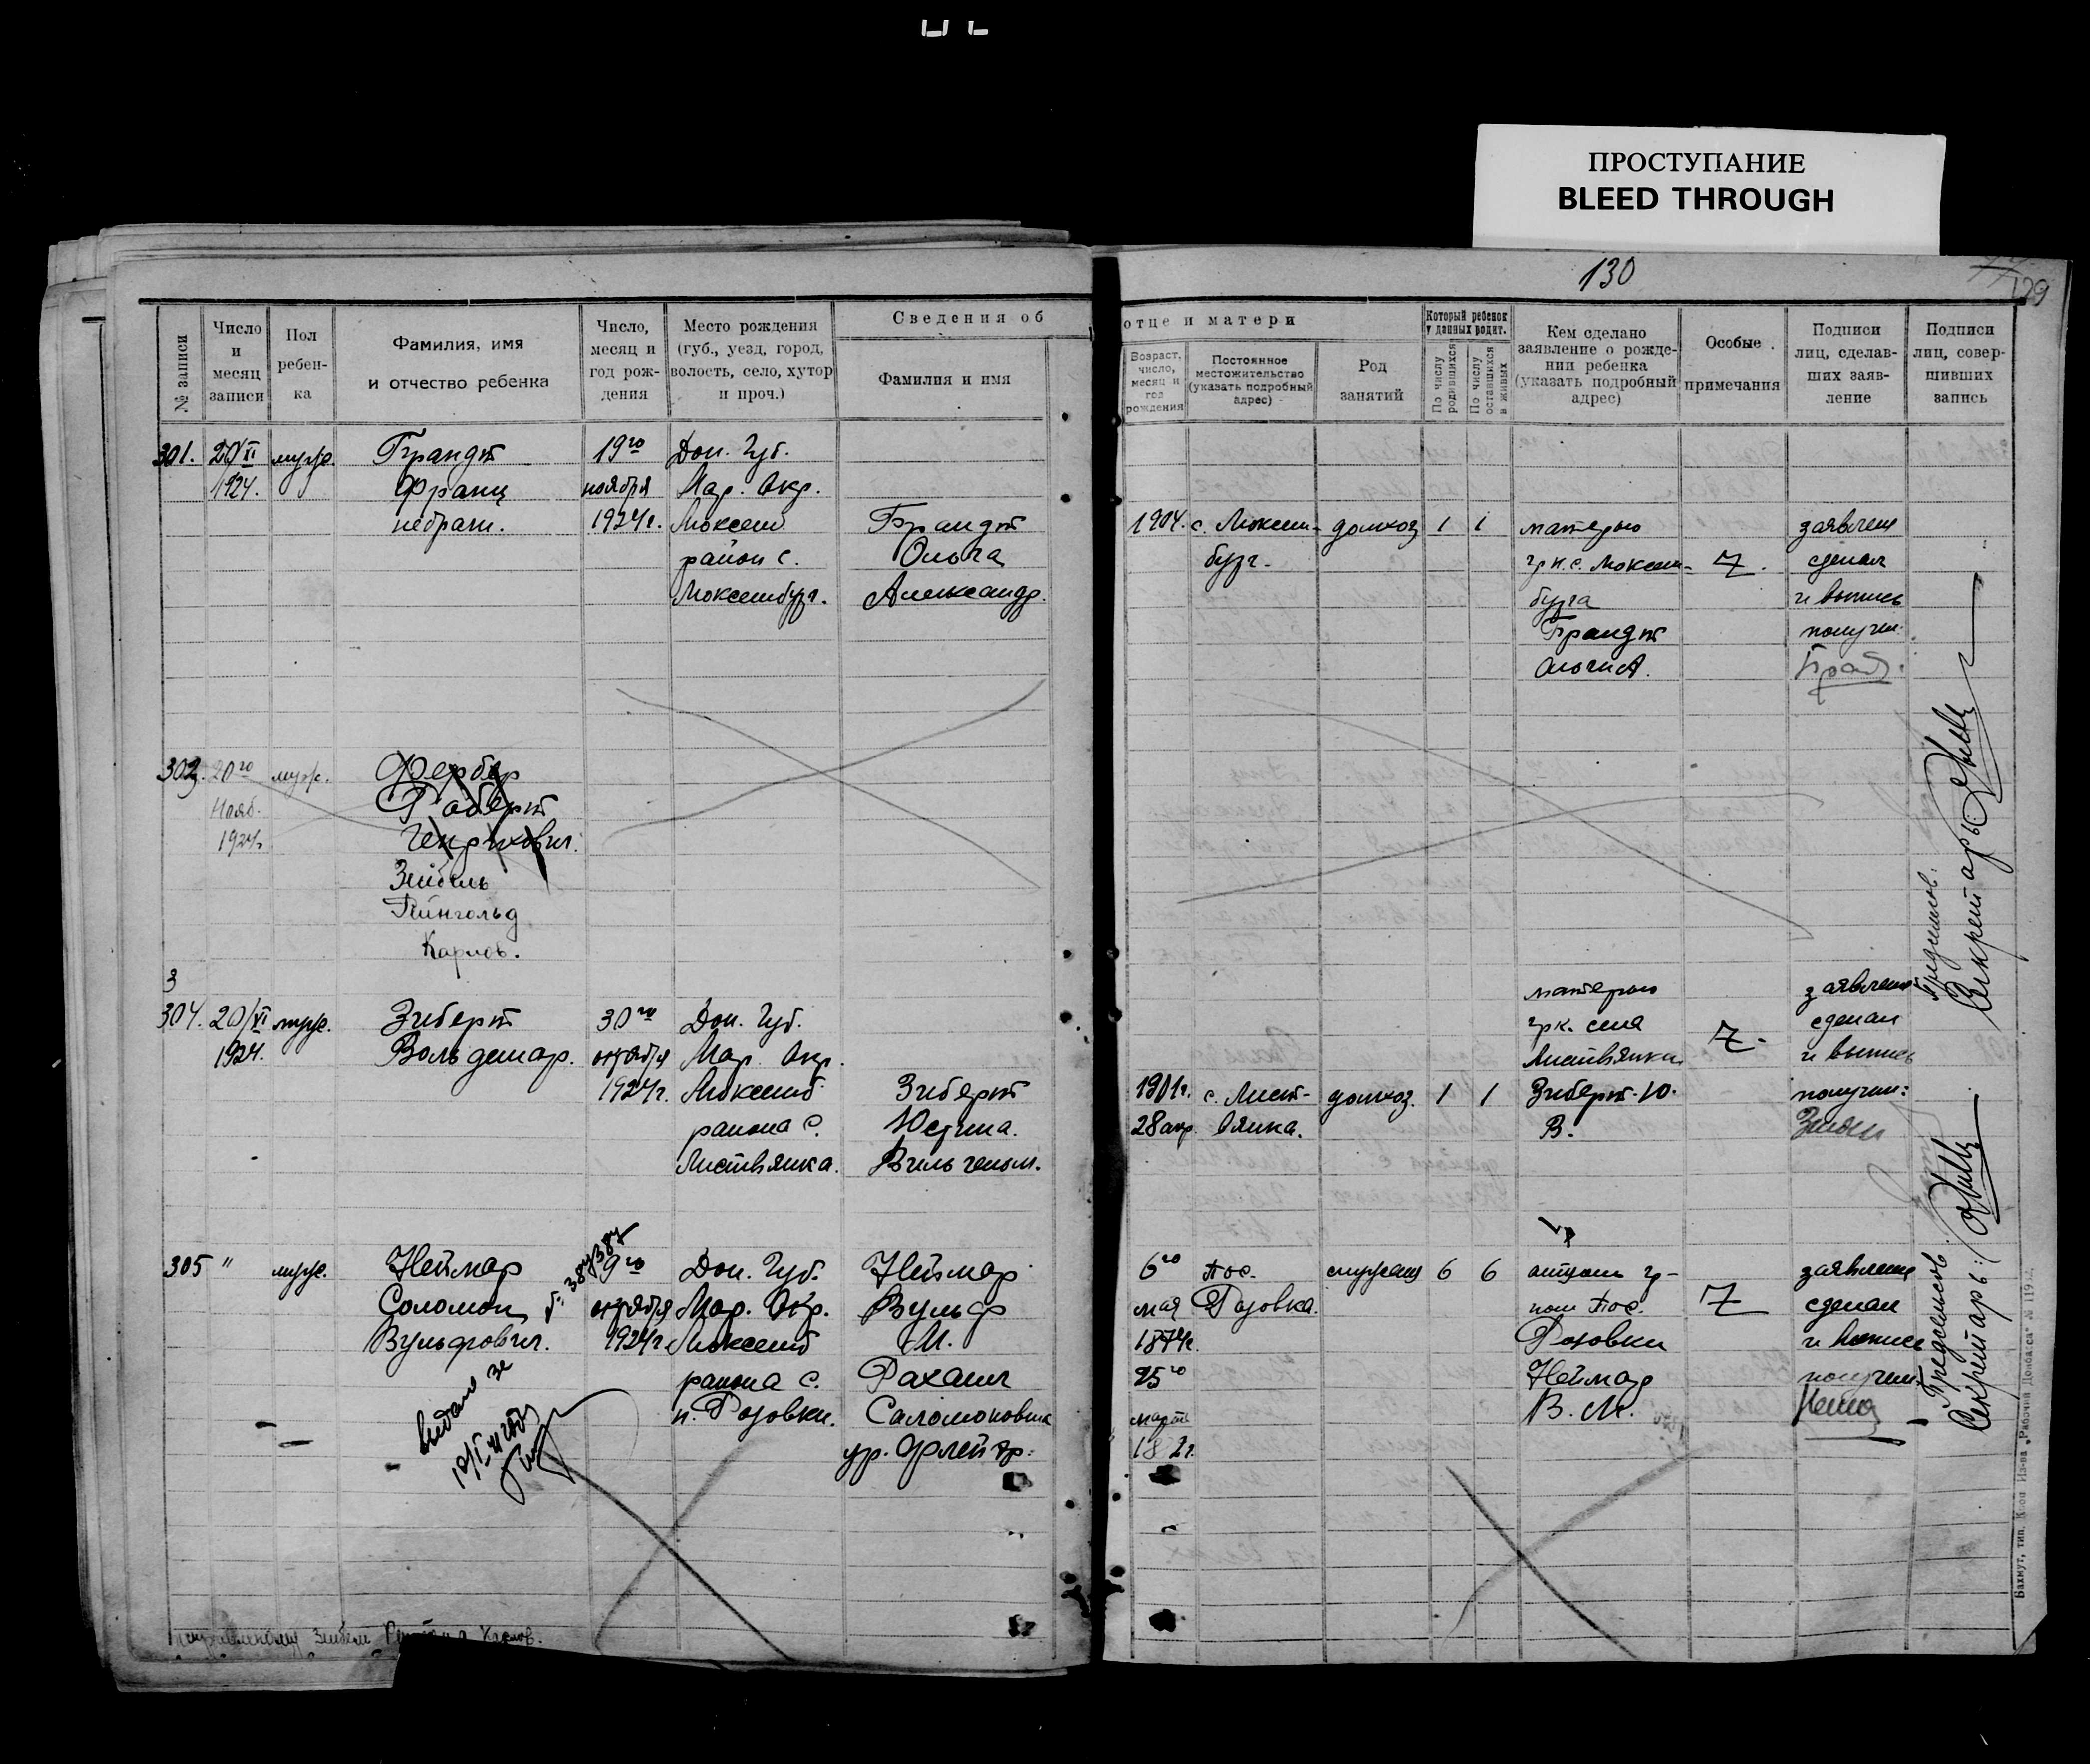 ПРОСТУПАНИЕ
BLEED THROUGH
130
129
№ записи
Число и месяц записи
Пол ребен-ка
Фамилия, имя
и отчество ребенка
Число, месяц и год рож-дения
Место рождения (губ., уезд, город, волость, село, хутор и проч.)
Сведения об
Фамилия и имя
отце и матери
Возраст, число, месяц и год рождения
Постоянное местожительство (указать подробный адрес)
Род занятий
Который ребенок у данных родит.
По числу родившихся
По числу оставшихся в живых
Кем сделано заявление о рожде-нии ребенка (указать подробный адрес)
Особые примечания
Подписи лиц, сделав-ших заяв-ление
Подписи лиц, совер-шивших запись
301. 20/XI муж. Брандт 19го Дон. Губ.
1924. Франц ноября Мар. Окр.
небрачн. 1924г. Люксемб Брандт 1904. с. Люксем- домхоз 1 1 матерью заявлен
район с. Ольга бург. гр н. с. Люксем- Z. сделал
Люксембург. Александр. бурга и выпись
Брандт получил
Ольги А.
302. 20го муж. Фербер
Нояб. Роберт
1924г. Генрихович.
Зейбель
Рейнгольд
Карлов.
3 матерью заявлен
304. 20/XI муж. Зиберт 30го Дон. Губ. грк. села Z. сделал
1924. Вольдемар. октября Мар. Окр. Листвянка и выпись
1924г. Люксемб Зиберт 1901г. с. Лист- домхоз. 1 1 Зиберт Ю. получил:
района с. Юстина. 28 апр. вянка. В.
Листвянка. Вильгельм.
305 " муж. Неймар 9го Дон. Губ. Неймар 6го пос. служащ 6 6 отцом гр- заявлен
Соломон октября Мар. Окр. Вульф мая Розовка. пос. Z сделал
Вульфович. 1924г. Люксемб М. 1874г. Розовки и выпись
района с. Рахиль 25го Неймар получил
п. Розовки. Саломоновна марта В. М.
ур. Флейтр. 18 2г.
выдано
Секретарь
Секретарь:
Зейбель Карлов.
Бахмут, тип. Изд-ва „Рабочий Донбасса" № 119